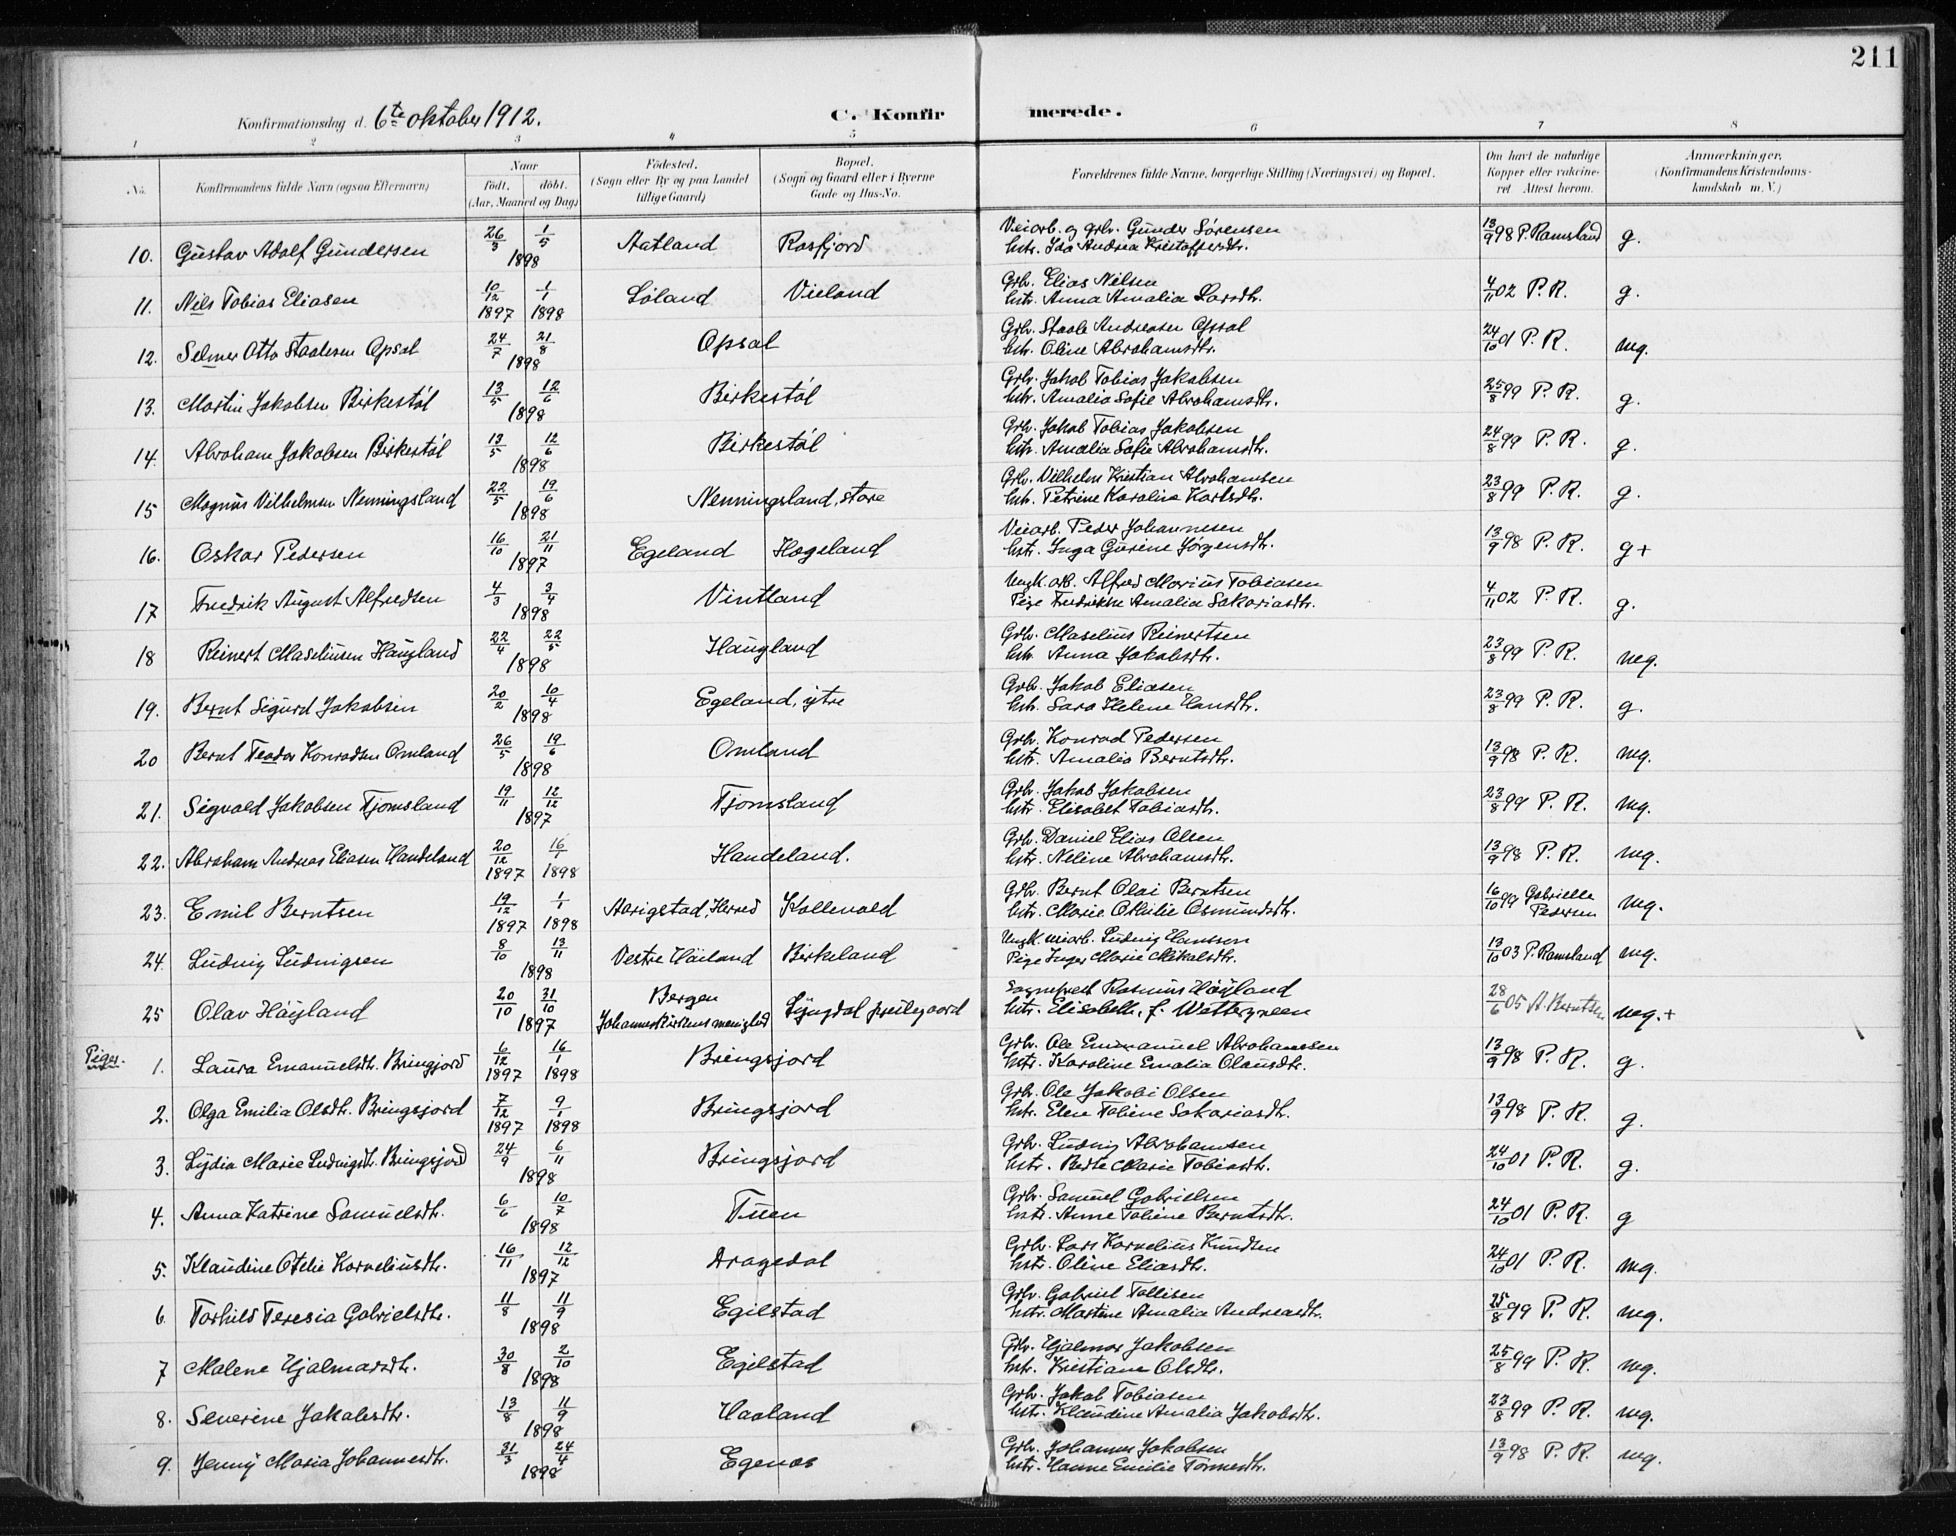 211
Konfirmationsdag d. 6te oktober 1912. C. Konfirmerede.
1 2 3 4 5 6 7 8
No. Konfirmandens fulde Navn (ogsaa Efternavn) Naar født. døbt. (Aar, Maaned og Dag) Fødested. (Sogn eller By og paa Landet tillige Gaard) Bopæl. (Sogn og Gaard eller i Byerne Gade og Hus-No. Forældrenes fulde Navne, borgerlige Stilling (Næringsvei) og Bopæl. Om havt de naturlige Kopper eller vakcineret Attest herom. Anmærkninger, (Konfirmandens Kristendomskundskab m. V.)
10. Gustav Adolf Gundersen 26/3 1/5 1898 Aatland Rosfjord Veiarb. og grbr. Gunder Sørensen hstr. Ida Andrea Kristoffersdtr. 13/9 98 P. Ramsland g.
11. Nils Tobias Eliasen 10/12 1897 1/1 1898 Løland Vieland Grbr. Elias Nilsen hstr. Anna Amalia Larsdtr. 4/11 02 P. R. g.
12. Selmer Otto Staalesen Opsal 24/7 21/8 1898 Opsal Grbr. Staale Andreasen Opsal hstr. Oline Abrahamsdtr. 24/10 01 P. R. mg.
13. Martin Jakobsen Birkestøl 13/5 12/6 1898 Birkestøl Grbr. Jakob Tobias Jakobsen hstr. Amalia Sofie Abrahamsdtr. 25/8 99 P. R. g.
14. Abraham Jakobsen Birkestøl 13/5 12/6 1898 Birkestøl Grbr. Jakob Tobias Jakobsen hstr. Amalia Sofie Abrahamsdtr. 24/8 99 P. R. g.
15 Magnus Vilhelmsen Nenningsland 22/5 19/6 1898 Nenningsland, store Grbr. Vilhelm Kristian Abrahamsen hstr. Petrine Karoline Karlsdtr. 23/8 99 P. R. g.
16. Oskar Pedersen 16/10 21/11 1897 Egeland Hægeland Veiarb. Peder Johannesen hstr. Inga Gurine Jørgensdtr. 13/9 98 P. R. g+
17 Fredrik August Alfredsen 4/3 3/4 1898 Vintland Ungk. arb. Alfred Marius Tobiasen Pige Fredrikke Amalia Sakariasdtr. 4/11 02 P. R. g.
18 Reinert Maseliusen Haugland 22/4 22/5 1898 Haugland Grbr. Maselius Reinertsen hstr. Anna Jakobsdtr. 23/8 99 P. R. mg.
19. Bernt Sigurd Jakobsen 20/2 10/4 1898 Egeland, ytre Grbr. Jakob Eliasen hstr. Sara Helene Hansdtr. 23/8 99 P. R. g.
20 Bernt Teodor Konradsen Omland 26/5 19/6 1898 Omland Grbr. Konrad Pedersen hstr. Amalia Berntsdtr. 13/9 98 P. R. mg.
21. Sigvald Jakobsen Tjomsland 19/11 12/12 1897 Tjomsland Grbr. Jakob Jakobsen hstr. Elisabet Tobiasdtr. 23/8 99 P. R. mg.
22. Abraham Andreas Eliasen Handeland 20/12 1897 16/1 1898 Handeland. Grbr. Daniel Elias Olsen hstr. Neline Abrahamsdtr. 13/9 98 P. R. mg.
23. Emil Berntsen 19/12 1897 1/1 1898 Aarigstad, Herred Kollevold Grbr. Bernt Olai Berntsen hstr. Marie Othilie Osmundsdtr. 16/10 99 Gabrielle Pedersen mg.
24. Ludvig Ludvigsen 8/10 13/11 1898 Vestre Haaland Birkeland Ungk. veiarb. Ludvig Hanssen Pige Inger Marie Mikalsdtr. 13/10 03 P. Ramsland mg.
25 Olav Høyland 20/10 31/10 1897 Bergen Johanneskirkens menighed Lyngdal prestegaard Sogneprest Rasmus Høyland hstr. Elisabeth, f. Wattergreen 28/6 05 A. Berntsen mg.+
Piger.
1. Laura Emanuelsdtr. Bringsjord 6/12 1897 16/1 1898 Bringsjord Grbr. Ole Emmanuel Abrahamsen hstr. Karoline Emalia Olausdtr. 13/9 98 P. R. g.
2. Olga Emilia Olsdtr. Bringsjord 7/12 1897 9/1 1898 Bringsjord Grbr. Ole Jakobi Olsen hstr. Elen Tobine Sakariasdtr. 13/9 98 P. R. g.
3. Lydia Marie Ludvigsdtr. Bringsjord 24/9 6/11 1898 Bringsjord Grbr. Ludvig Abrahamsen hstr. Berte Marie Tobiasdtr. 24/10 01 P. R. g.
4. Anna Katrine Samuelsdtr. 6/6 10/7 1898 Tuen Grbr. Samuel Gabrielsen hstr. Anne Tobine Berntsdtr. 24/10 01 P. R. g
5. Klaudine Otelie Korneliusdtr. 16/11 12/12 1897 Dragedal Grbr. Lars Kornelius Knudsen hstr. Oline Eliasdtr. 24/10 01 P. R. mg.
6 Torhild Teresia Gabrielsdtr. 11/8 11/9 1898 Egilstad Grbr. Gabriel Tollisen hstr. Martine Amalia Andreasdtr. 25/8 99 P. R. mg.
7 Malene Hjalmarsdtr. 30/8 2/10 1898 Egilstad Grbr. Hjalmar Jakobsen hstr. Kristiane Olsdtr. 25/8 99 P. R. mg.
8. Severine Jakobsdtr. 13/8 11/9 1898 Haaland Grbr. Jakob Tobiasen hstr. Klaudine Amalia Jakobsdtr. 23/8 99 P. R. mg.
9. Jenny Maria Johannesdtr. 31/3 24/4 1898 Egenes Grbr. Johannes Jakobsen hstr. Hanne Emilie Tomesdtr. 13/9 98 P. R. mg.